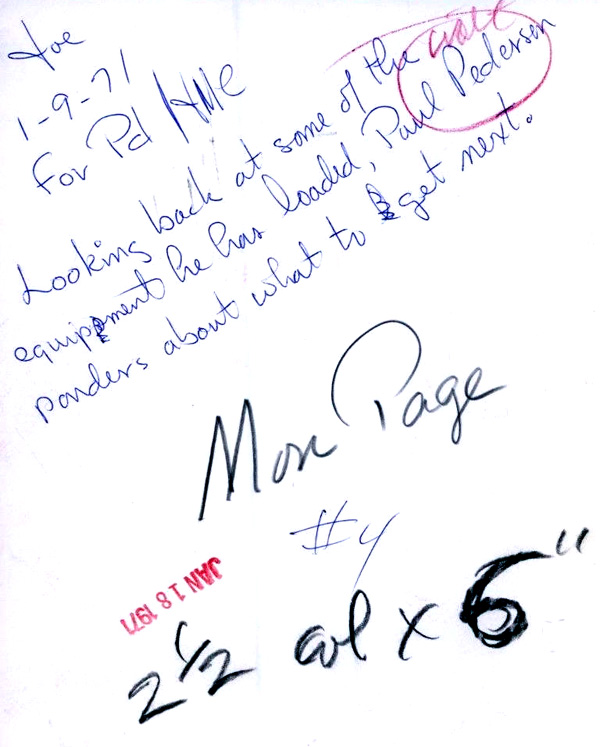 1-9-71
For Pd HMC
Looking back at some of the
equipment he has loaded, Paul Pedersen
ponders about what to get next.
Mon Page
#4
JAN 18 1971
2 1/2 col x 6"